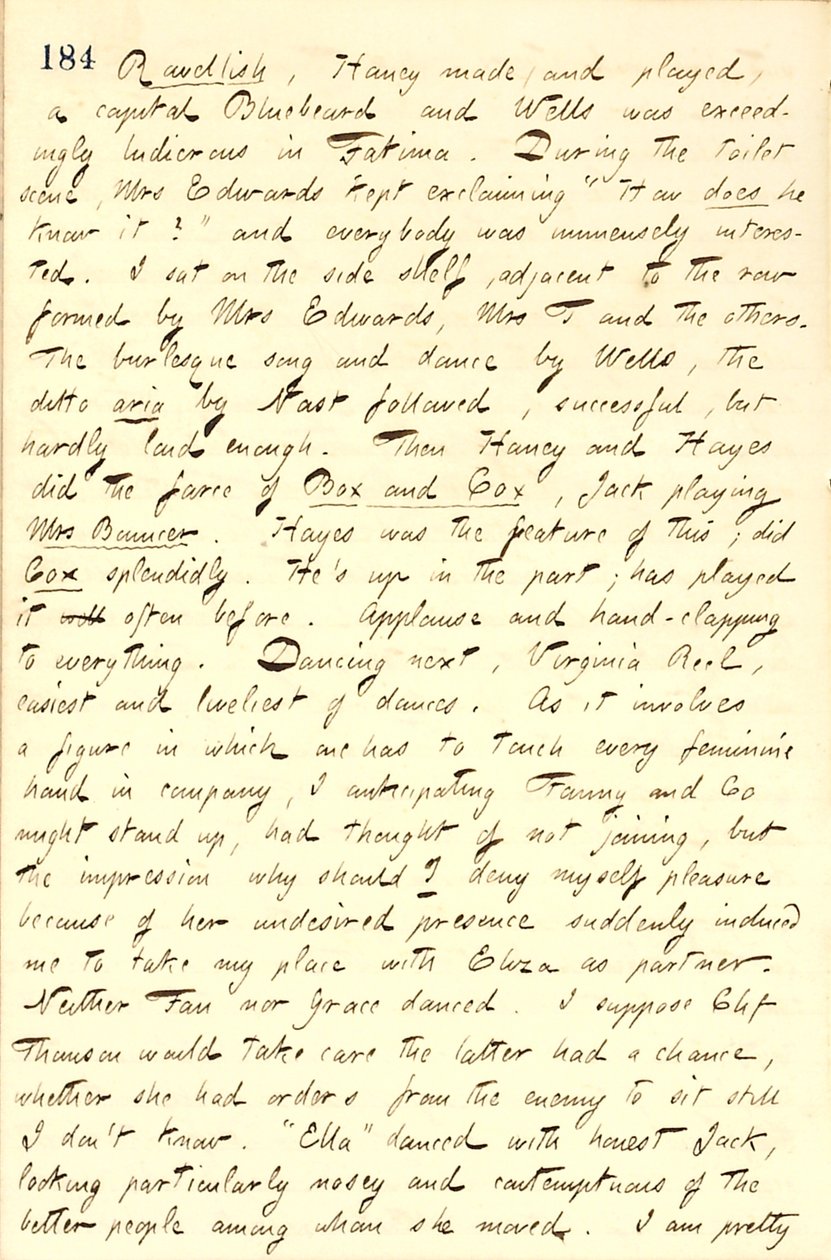 184
Ravellish, Haney made, and played,
a capital Bluebeard and Wells was exceed-
ingly ludicrous in Fatima. During the toilet
scene, Mrs Edwards kept exclaiming "How does he
know it?" and everybody was immensely interes-
ted. I sat on the side shelf, adjacent to the row
formed by Mrs Edwards, Mrs T and the others.
The burlesque song and dance by Wells, the
ditto aria by Nast followed, successful, but
hardly loud enough. Then Haney and Hayes
did the farce of Box and Cox, Jack playing
Mrs Bouncer. Hayes was the feature of this; did
Cox splendidly. He's up in the part; has played
it well often before. Applause and hand-clapping
to everything. Dancing next, Virginia Reel,
easiest and liveliest of dances. As it involves
a figure in which one has to touch every feminine
hand in company, I anticipating Fanny and Co
might stand up, had thought of not joining, but
the impression why should I deny myself pleasure
because of her undesired presence suddenly induced
me to take my place with Eliza as partner.
Neither Fan nor Grace danced. I suppose Clif
Thomson would take care the latter had a chance,
whether she had orders from the enemy to sit still
I don't know. "Ella" danced with honest Jack,
looking particularly nosey and contemptuous of the
better people among whom she moved. I am pretty